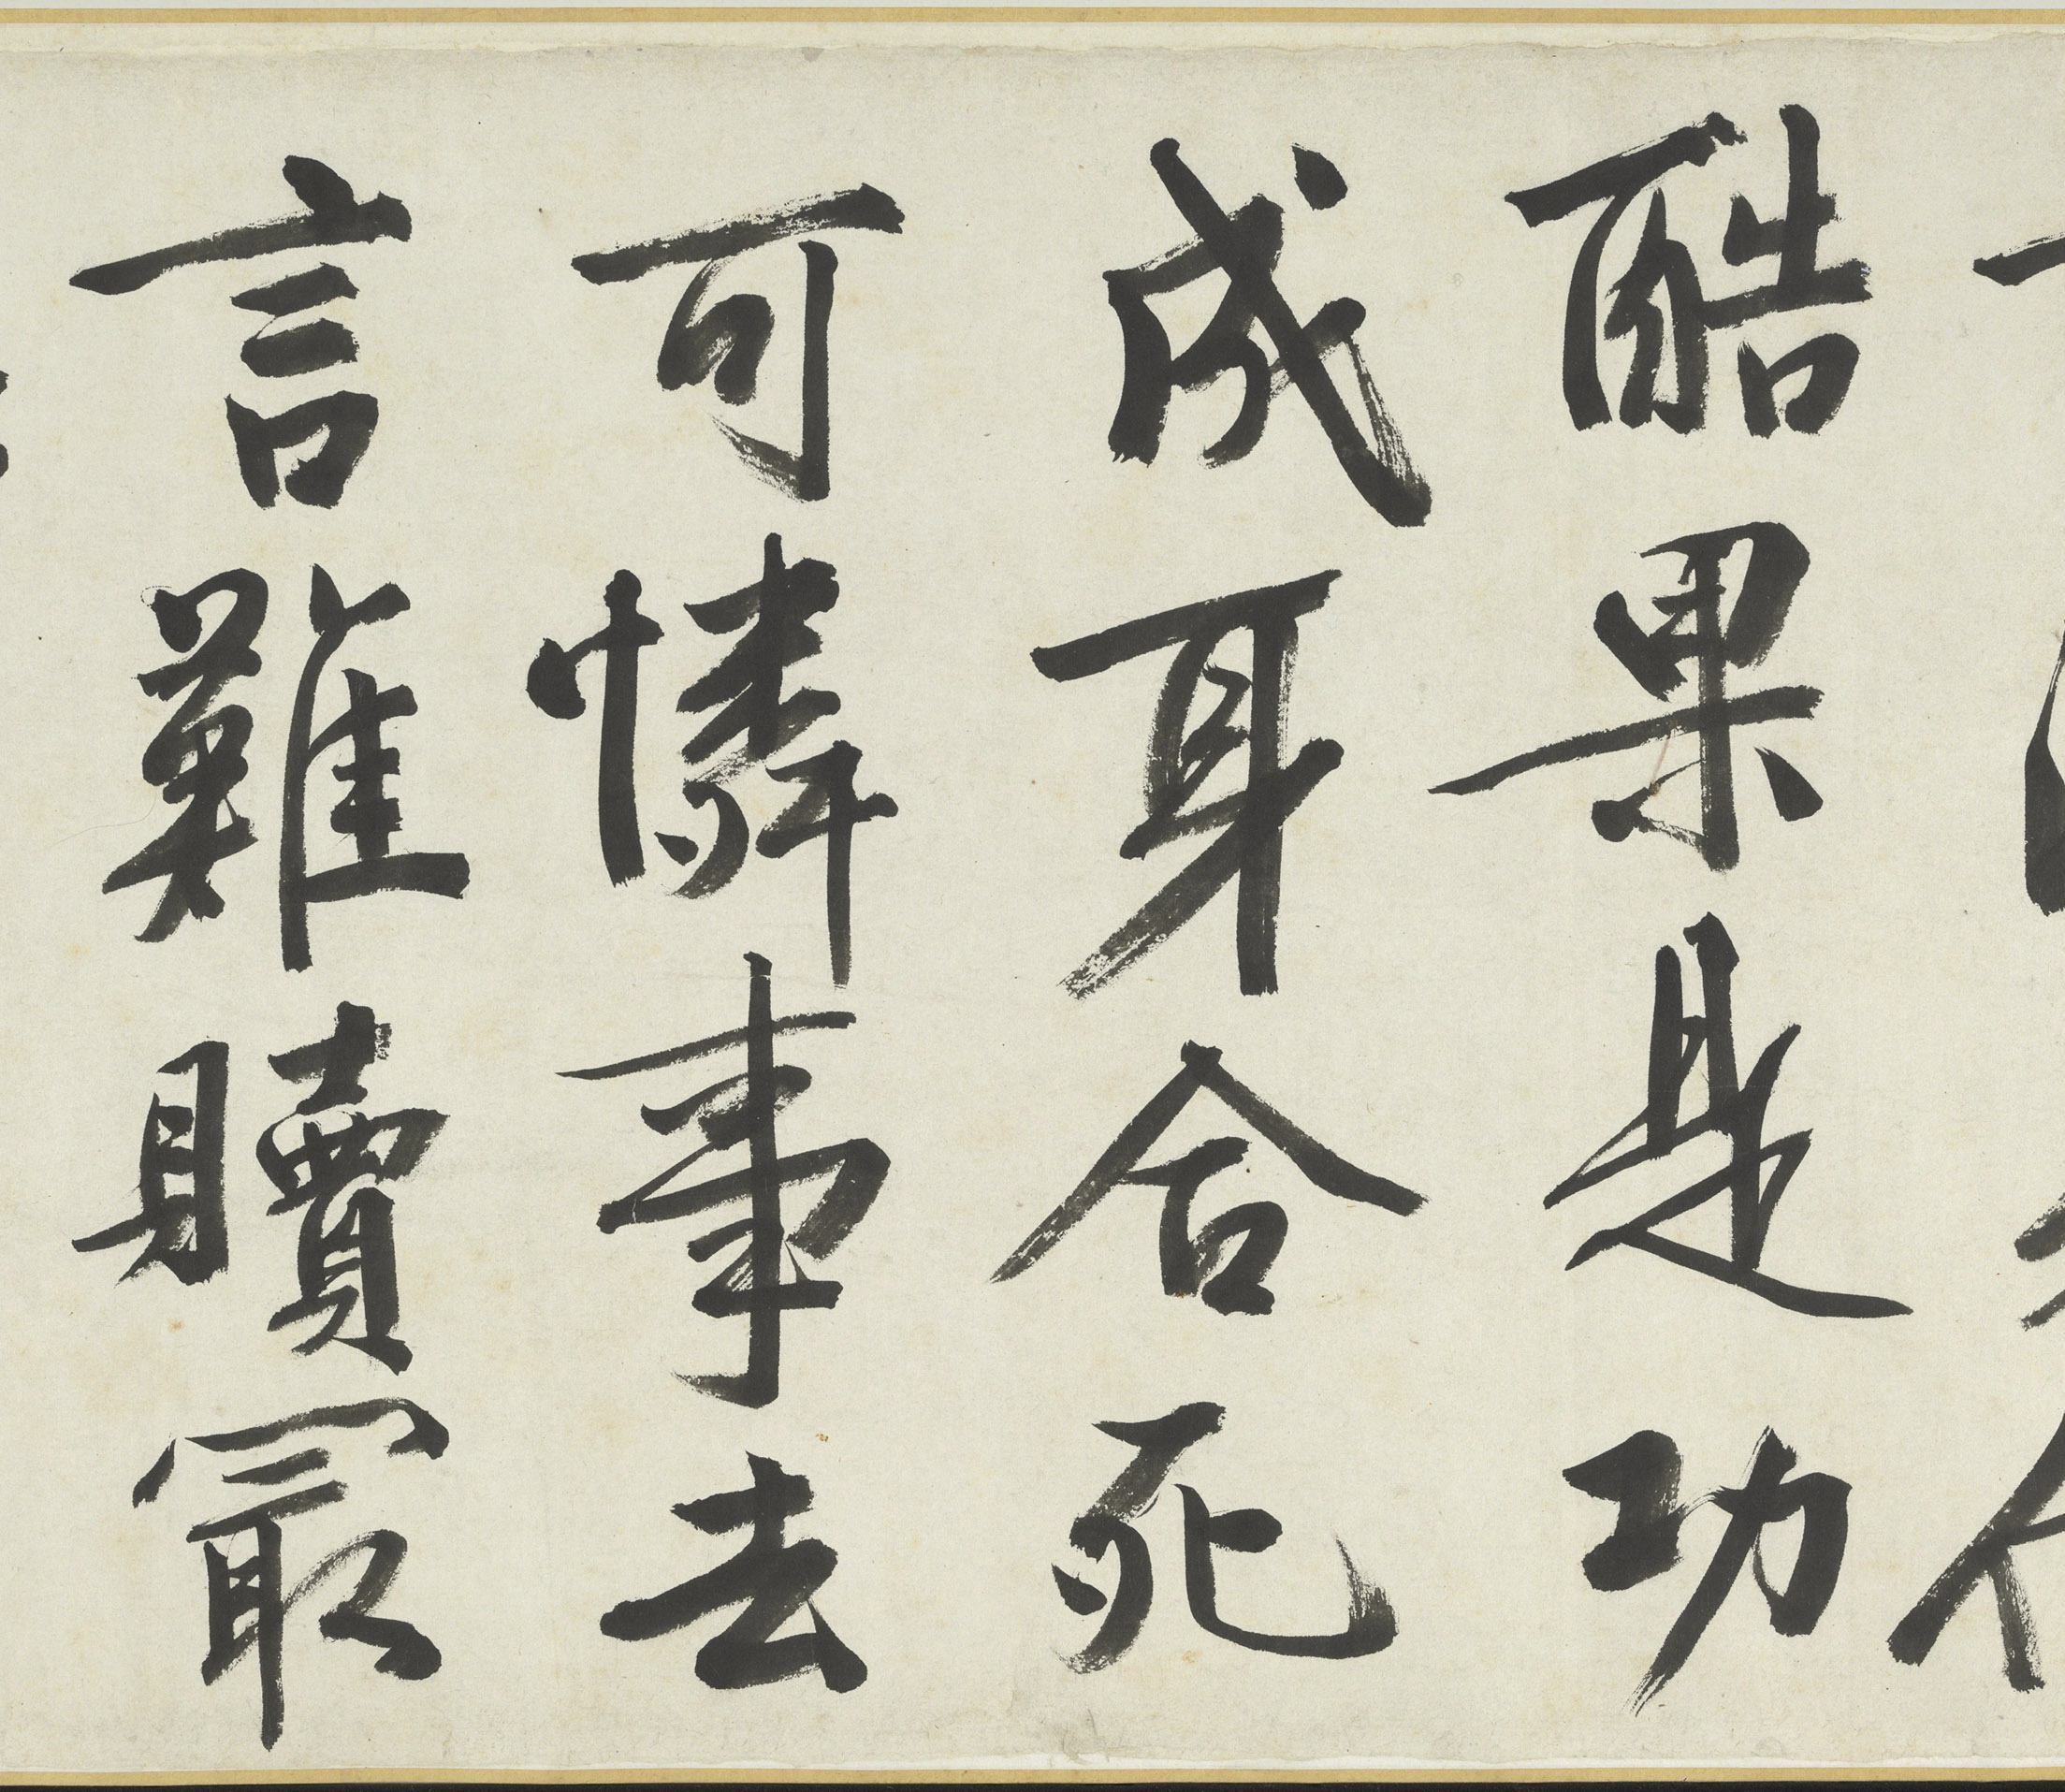 酷果是功
成身合死
可憐事去
言難贖最